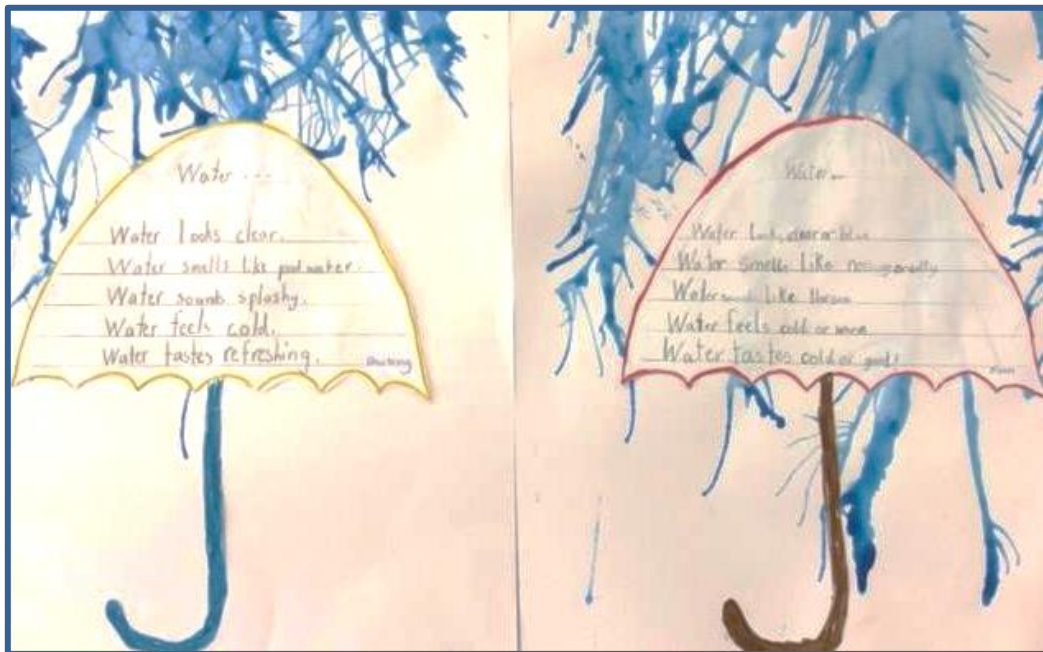 Water ...
Water looks clear.
Water smells like pool water.
Water sounds splashy.
Water feels cold.
Water tastes refreshing.
Water...
Water looks clear or blue
Water smells like
Water like
Water feels cold or warm
Water tastes cold or good!